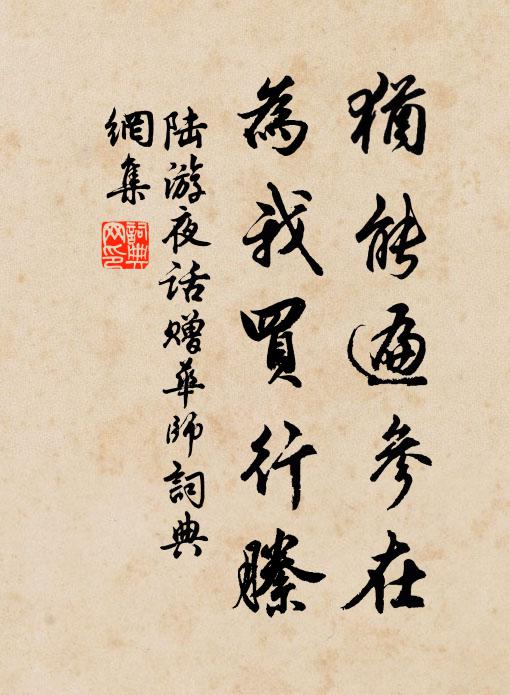 猶能遍參在
為我買行縢
陆游夜话赠華师詞典
網集
詞典网印